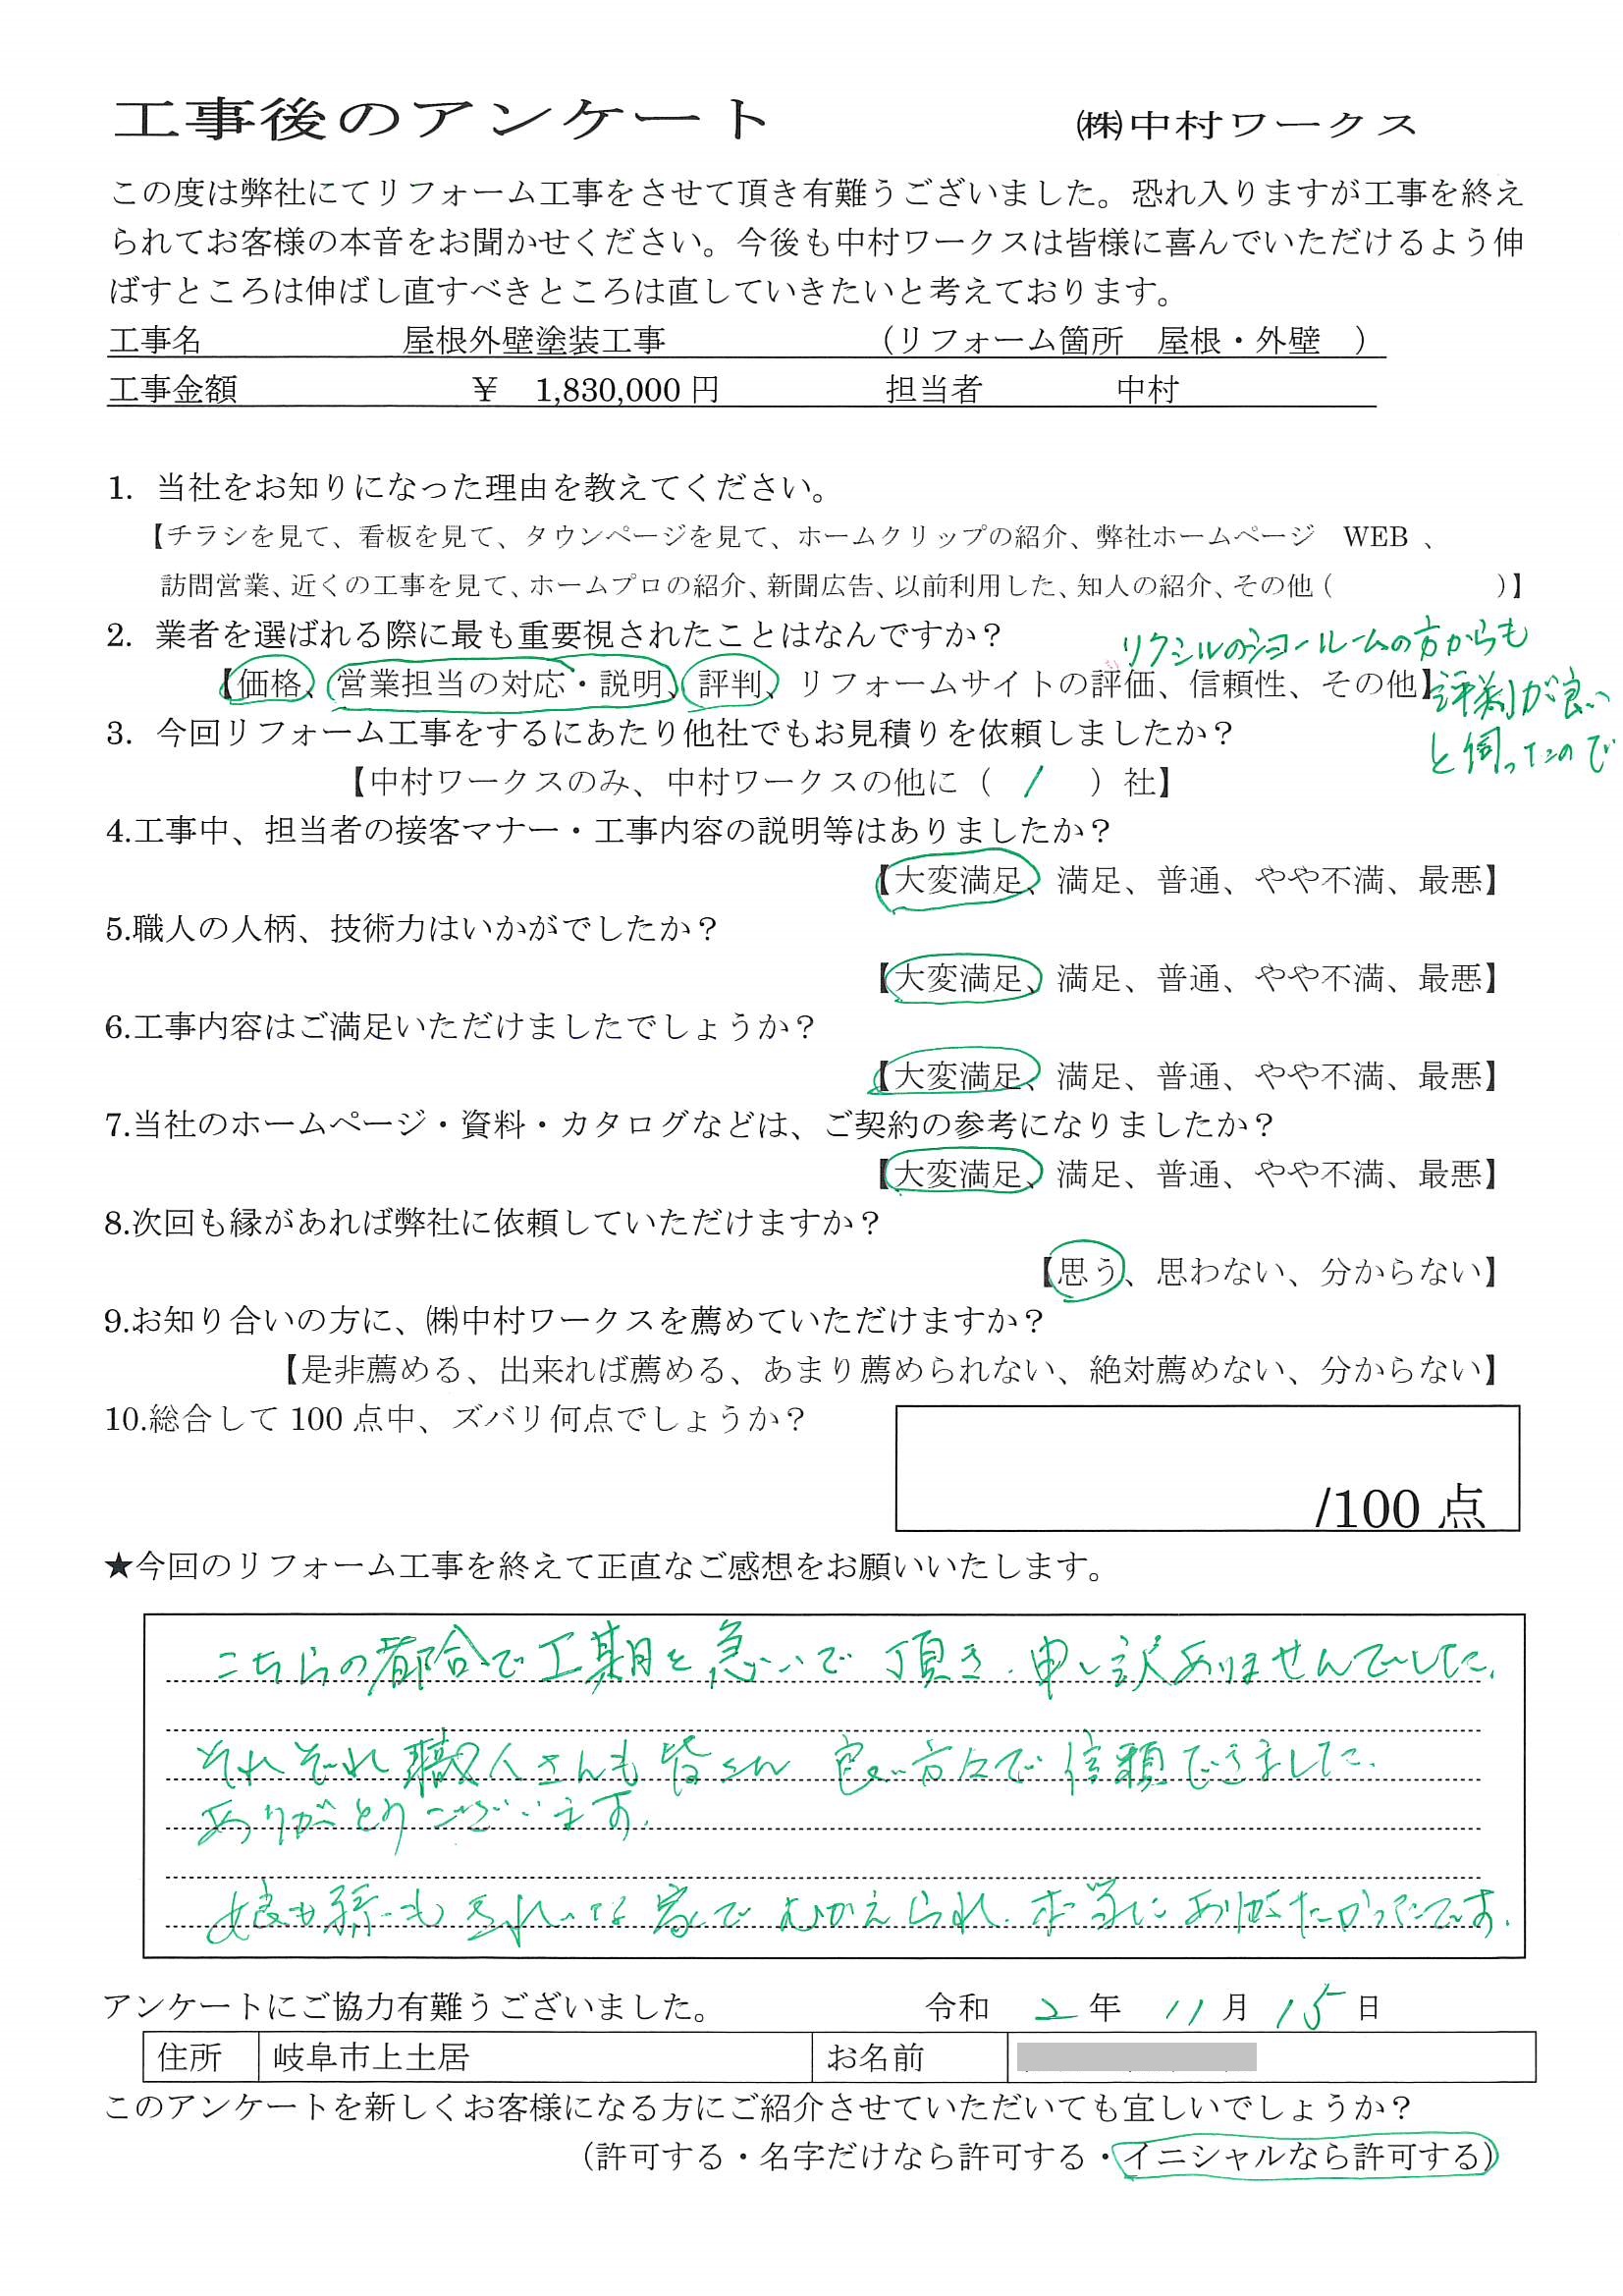 工事後のアンケート　㈱中村ワークス
この度は弊社にてリフォーム工事をさせて頂き有難うございました。恐れ入りますが工事を終え
られてお客様の本音をお聞かせください。今後も中村ワークスは皆様に喜んでいただけるよう伸
ばすところは伸ばし直すべきところは直していきたいと考えております。
工事名　屋根外壁塗装工事　（リフォーム箇所　屋根・外壁　）
工事金額　￥　1,830,000 円　担当者　中村
1. 当社をお知りになった理由を教えてください。
【チラシを見て、看板を見て、タウンページを見て、ホームクリップの紹介、弊社ホームページ　WEB 、
訪問営業、近くの工事を見て、ホームプロの紹介、新聞広告、以前利用した、知人の紹介、その他（　）】
2. 業者を選ばれる際に最も重要視されたことはなんですか？
リクシルのショールームの方からも
【価格、営業担当の対応・説明、評判、リフォームサイトの評価、信頼性、その他】
評判が良い
と伺ったので
3. 今回リフォーム工事をするにあたり他社でもお見積りを依頼しましたか？
【中村ワークスのみ、中村ワークスの他に（ 1 ）社】
4.工事中、担当者の接客マナー・工事内容の説明等はありましたか？
【大変満足、満足、普通、やや不満、最悪】
5.職人の人柄、技術力はいかがでしたか？
【大変満足、満足、普通、やや不満、最悪】
6.工事内容はご満足いただけましたでしょうか？
【大変満足、満足、普通、やや不満、最悪】
7.当社のホームページ・資料・カタログなどは、ご契約の参考になりましたか？
【大変満足、満足、普通、やや不満、最悪】
8.次回も縁があれば弊社に依頼していただけますか？
【思う、思わない、分からない】
9.お知り合いの方に、㈱中村ワークスを薦めていただけますか？
【是非薦める、出来れば薦める、あまり薦められない、絶対薦めない、分からない】
10.総合して 100 点中、ズバリ何点でしょうか？
/100 点
★今回のリフォーム工事を終えて正直なご感想をお願いいたします。
こちらの都合で工期を急いで頂き、申し訳ありませんでした。
それぞれ職人さんも皆さん良い方々で信頼できました。
ありがとうございます。
娘も孫もきれいな家でむかえられ、本当にありがたかったです。
アンケートにご協力有難うございました。　令和 2 年 11 月 15 日
住所　岐阜市上土居　お名前
このアンケートを新しくお客様になる方にご紹介させていただいても宜しいでしょうか？
（許可する・名字だけなら許可する・イニシャルなら許可する）